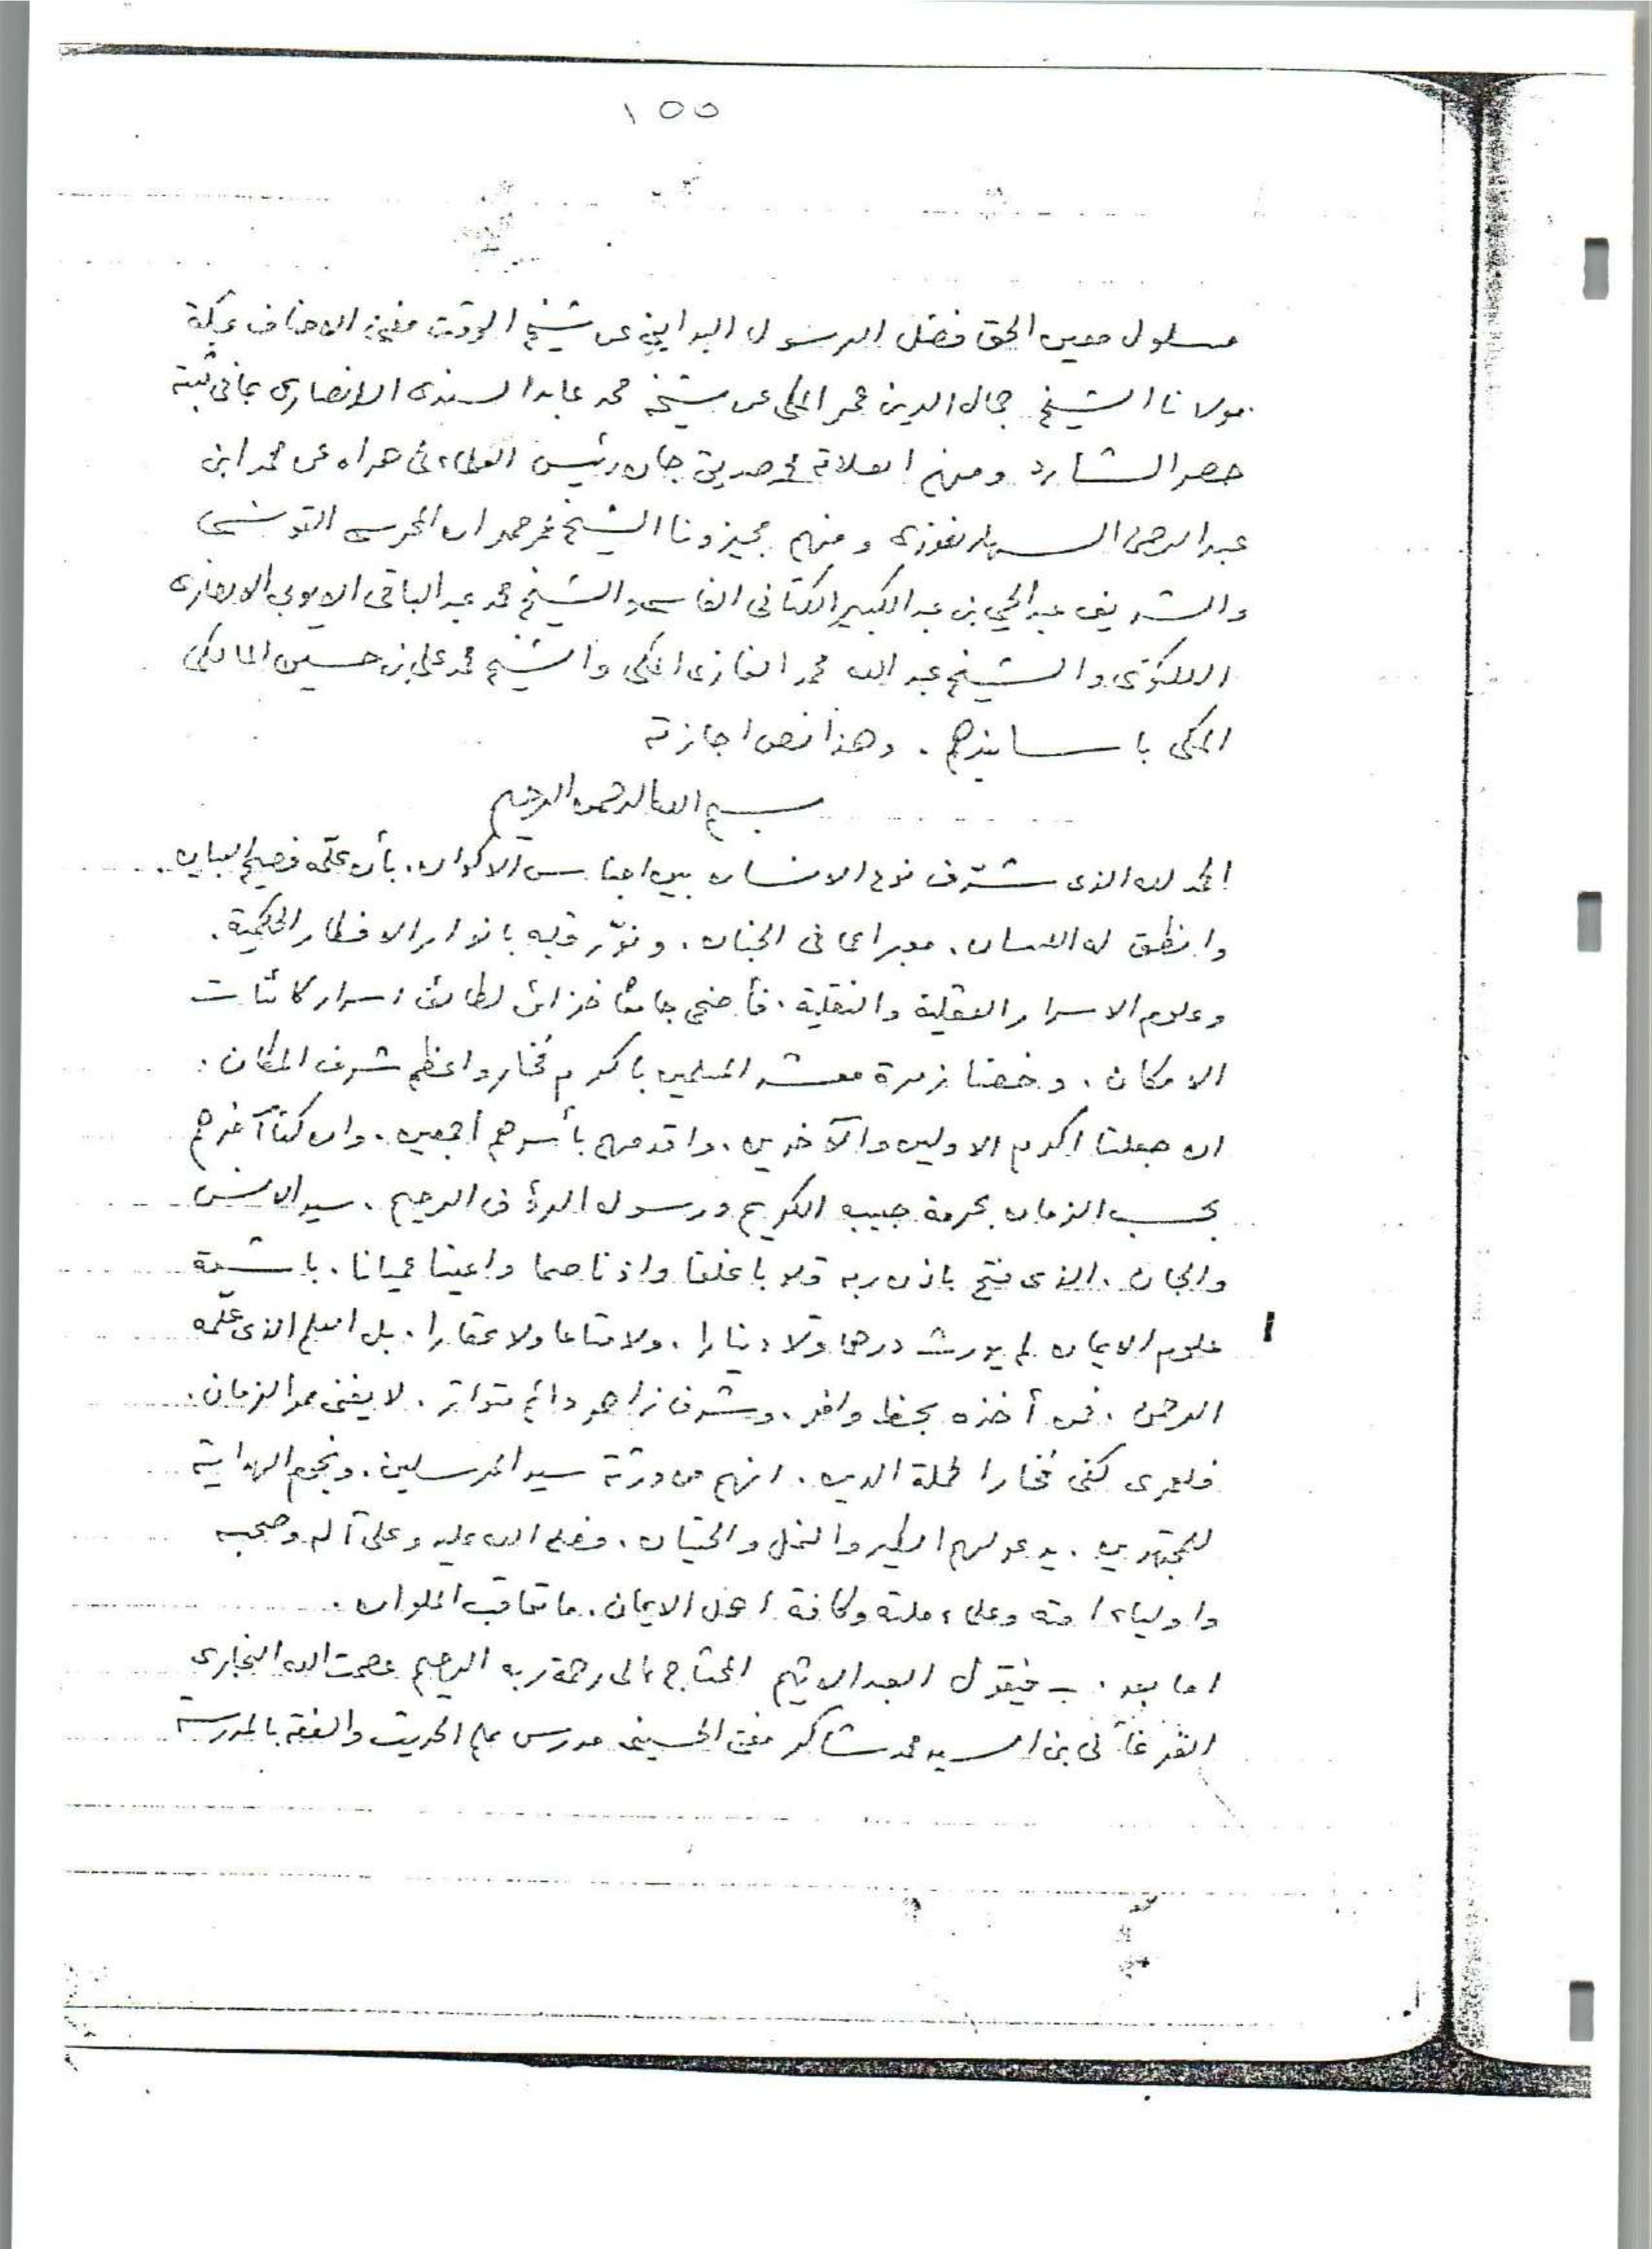 ١٥٥
مسلول معين الحق فضل الرسول البدايني عن شيخ الوقت مفتي الاحناف بمكة
مولانا الشيخ جمال الدين عمر المكي عن شيخه محمد عابد السندى الانصارى بما فى ثبته
حصر الشارد ومنهم العلامة محمد صديق جان رئيس العلماء فى هراه عن محمد ابن
عبد الرحمن السهارنفورى ومنهم مجيزونا الشيخ عمر حمدان المحرسى التونسى
والشريف عبد الحي بن عبد الكبير الكتانى الفاسى والشيخ محمد عبد الباقى الايوبى الانصارى
اللكنوى والشيخ عبد الله محمد الغازى المكى والشيخ محمد على بن حسين المالكى
المكى باسانيدهم . وهذا نص اجازته
بسم الله الرحمن الرحيم
الحمد لله الذى شرّف نوع الانسان بين اجناس الاكوان . بأن علّمه فصيح البيان .
وانطق له اللسان . معبرا عما فى الجنان . ونوّر قلبه بانوار الافكار الحكمية .
وعلوم الاسرار العقلية والنقلية . فأضحى جامعًا خزائن لطائف اسرار كائنات
الامكان . وخصنا زمرة معشر المسلمين باكرم فخار واعظم شرف المكان :
ان جعلنا اكرم الاولين والآخرين . واقدمهم بأسرهم أجمعين . وان كنا آخرهم
بحسب الزمان بحرمة حبيبه الكريم ورسوله الرؤف الرحيم . سيد الانس
والجان . الذى فتح باذن ربه قلوبا غلفا واذنا صما واعينا عميانا . باشعة
علوم الايمان لم يورث درهما ولا دينارا . ولا متاعا ولا عقارا . بل العلم الذى علّمه
الرحمن . فمن أخذه بحظ وافر . وشرف زاهر دائم متواتر . لا يفنى بمر الزمان .
فلعمرى كفى فخارا لحملة الدين . انهم من ورثة سيد المرسلين . ونجوم الهداية
للمجتهدين . يدعو لهم الطير والنمل والحيتان . فصلى الله عليه وعلى آله وصحبه
واولياء امته وعلماء ملته وكافة اهل الايمان . ما تعاقب الملوان .
اما بعد . فيقول العبد الاثيم المحتاج الى رحمة ربه الرحيم عصمت الله البخارى
الفرغانى بن السيد محمد شاكر مفتى الحسينى مدرس علم الحديث والفقه بالمدرسة